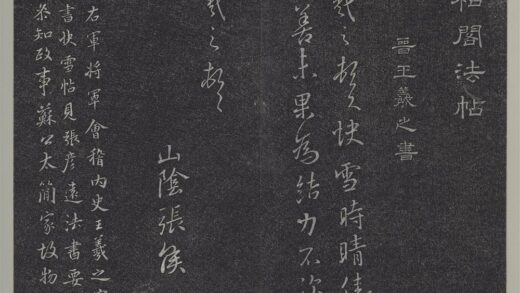 閣法帖
晉王羲之書
羲之頓首快雪時晴佳
善未果為結力不次
羲之頓首
山陰張侯
右軍將軍會稽內史王羲之
書快雪帖見張彥遠法書要
參知政事蘇公太簡家故物